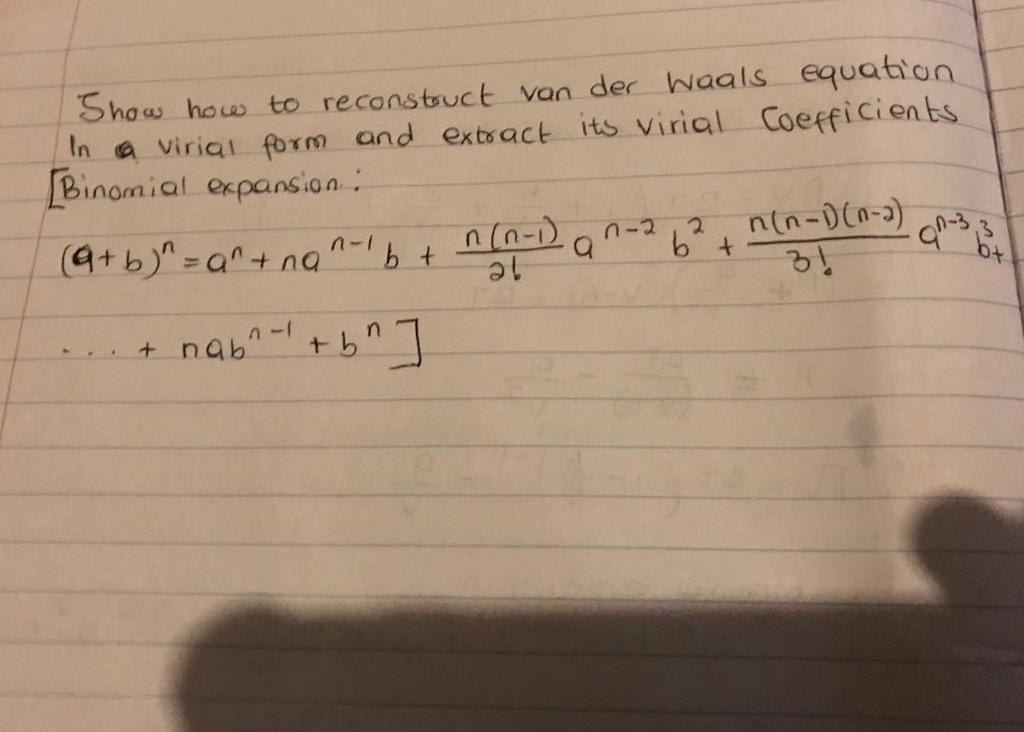 Show how to reconstruct van der Waals equation
In a virial form and extract its virial Coefficients
[Binomial expansion :
(a+b)ⁿ = aⁿ + naⁿ⁻¹b + n(n-1)/2! aⁿ⁻²b² + n(n-1)(n-2)/3! aⁿ⁻³b³+
... + nabⁿ⁻¹ + bⁿ]